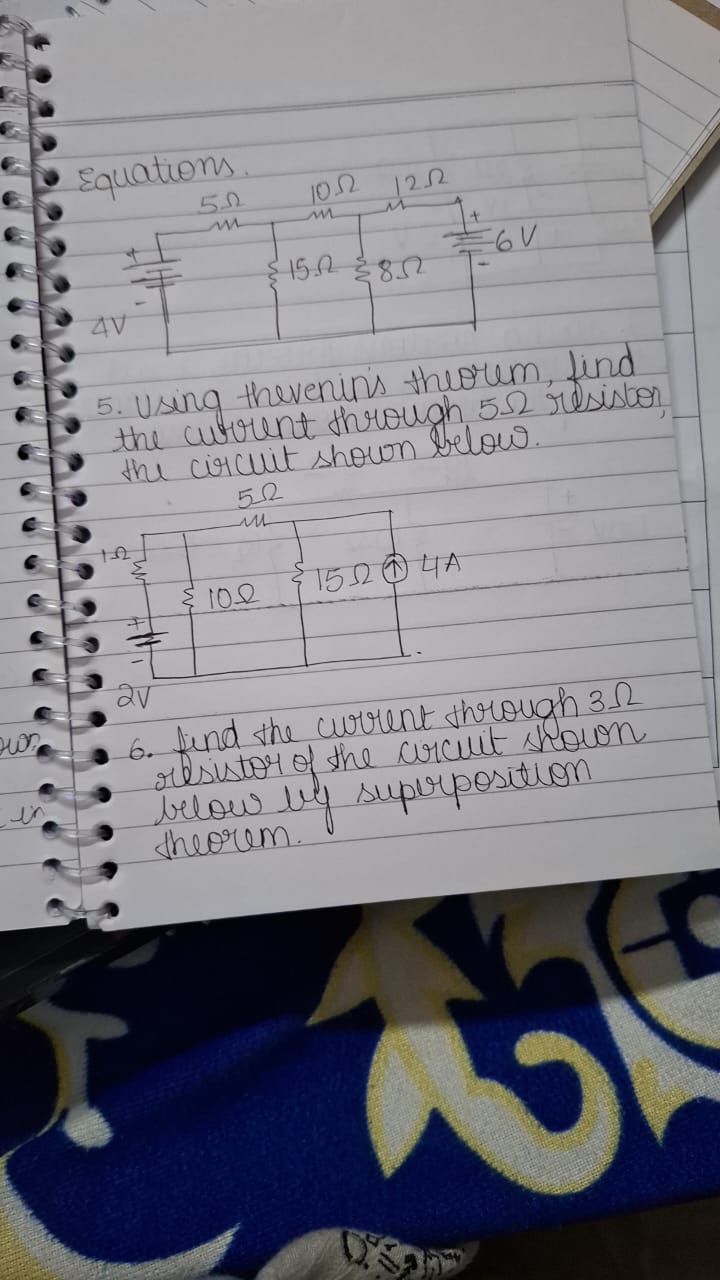 Equations.
5Ω 10Ω 12Ω
+ +
15Ω 8Ω 6V
- -
4V
5. Using thevenin's theorem, find
the current through 5Ω resistor,
the circuit shown below.
5Ω
1Ω
10Ω 15Ω 4A
+
-
2V
6. find the current through 3Ω
resistor of the circuit shown
below by superposition
theorem.
in